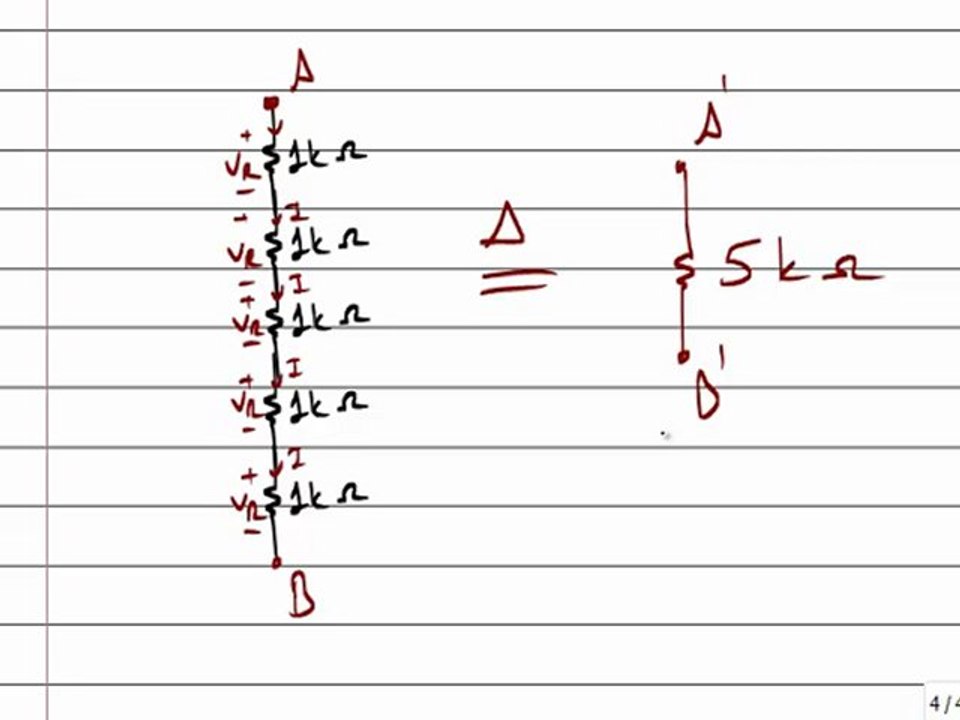 A
+
V_R 1kΩ
−
+ I
V_R 1kΩ
− I
+
V_R 1kΩ
−
I
+
V_R 1kΩ
−
I
+
V_R 1kΩ
−
B
Δ
=
A'
5kΩ
B'
4/4